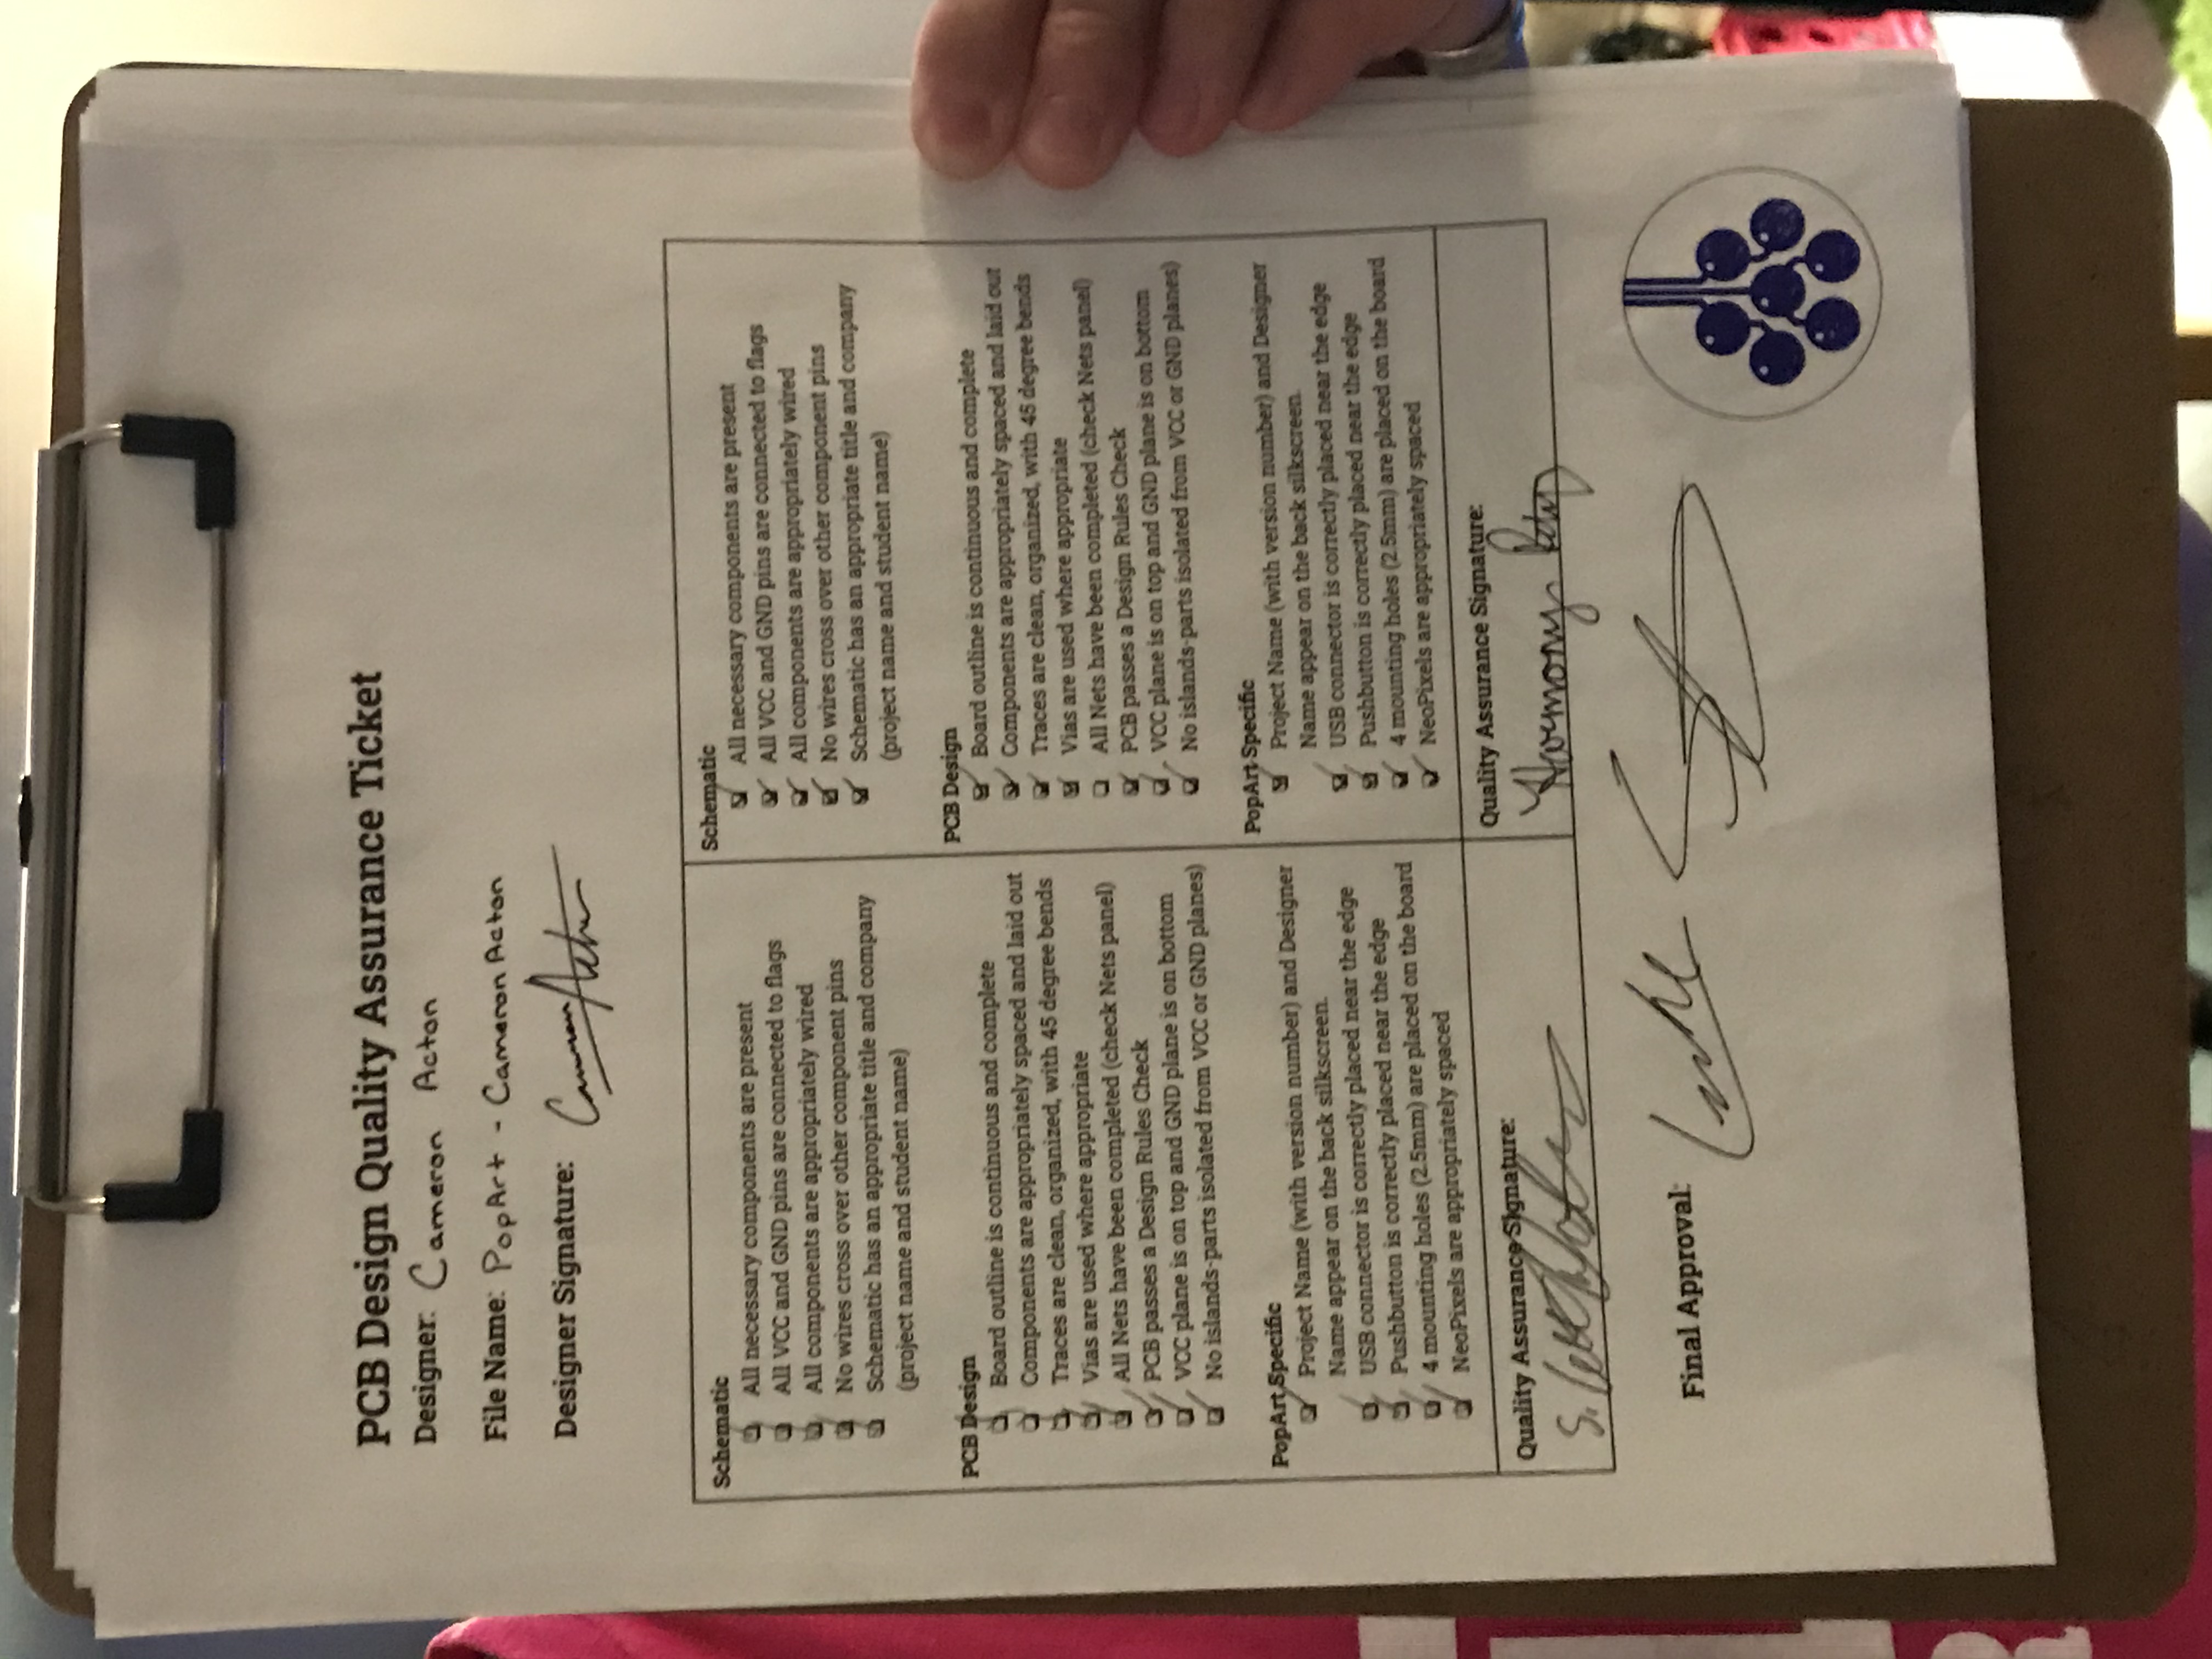 PCB Design Quality Assurance Ticket
Designer: Cameron Acton
File Name: PopArt - CameronActon
Designer Signature: Cameron Acton
Schematic
All necessary components are present
All VCC and GND pins are connected to flags
All components are appropriately wired
No wires cross over other component pins
Schematic has an appropriate title and company
(project name and student name)
PCB Design
Board outline is continuous and complete
Components are appropriately spaced and laid out
Traces are clean, organized, with 45 degree bends
Vias are used where appropriate
All Nets have been completed (check Nets panel)
PCB passes a Design Rules Check
VCC plane is on top and GND plane is on bottom
No islands-parts isolated from VCC or GND planes)
PopArt Specific
Project Name (with version number) and Designer
Name appear on the back silkscreen.
USB connector is correctly placed near the edge
Pushbutton is correctly placed near the edge
4 mounting holes (2.5mm) are placed on the board
NeoPixels are appropriately spaced
Quality Assurance Signature:
S.
Schematic
All necessary components are present
All VCC and GND pins are connected to flags
All components are appropriately wired
No wires cross over other component pins
Schematic has an appropriate title and company
(project name and student name)
PCB Design
Board outline is continuous and complete
Components are appropriately spaced and laid out
Traces are clean, organized, with 45 degree bends
Vias are used where appropriate
All Nets have been completed (check Nets panel)
PCB passes a Design Rules Check
VCC plane is on top and GND plane is on bottom
No islands-parts isolated from VCC or GND planes)
PopArt Specific
Project Name (with version number) and Designer
Name appear on the back silkscreen.
USB connector is correctly placed near the edge
Pushbutton is correctly placed near the edge
4 mounting holes (2.5mm) are placed on the board
NeoPixels are appropriately spaced
Quality Assurance Signature:
Harmony
Final Approval: Luke